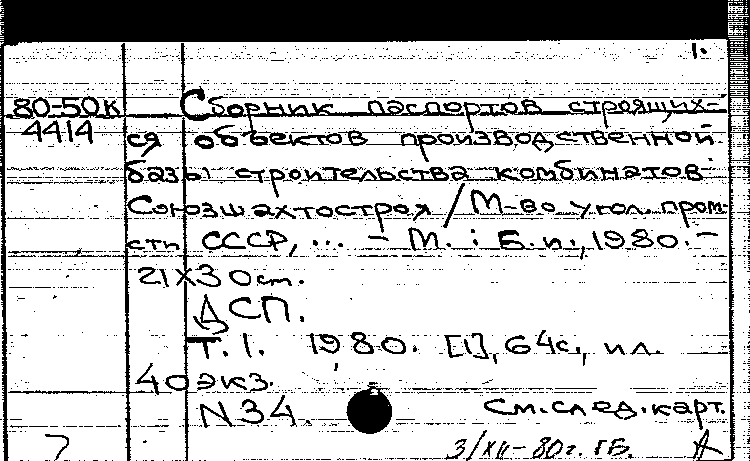 1.
80-50к Сборник паспортов строящих-
4414 ся объектов производственной
базы строительства комбинатов
Союзшахтостроя / М-во угол. пром-
сти СССР, ... - М. : Б.и., 1980. -
21х30 см.
ДСП.
Т. 1. 1980. [1], 64с., ил.
40 экз.
N34. См. след. карт.
7 3/XII-80г. ГБ.